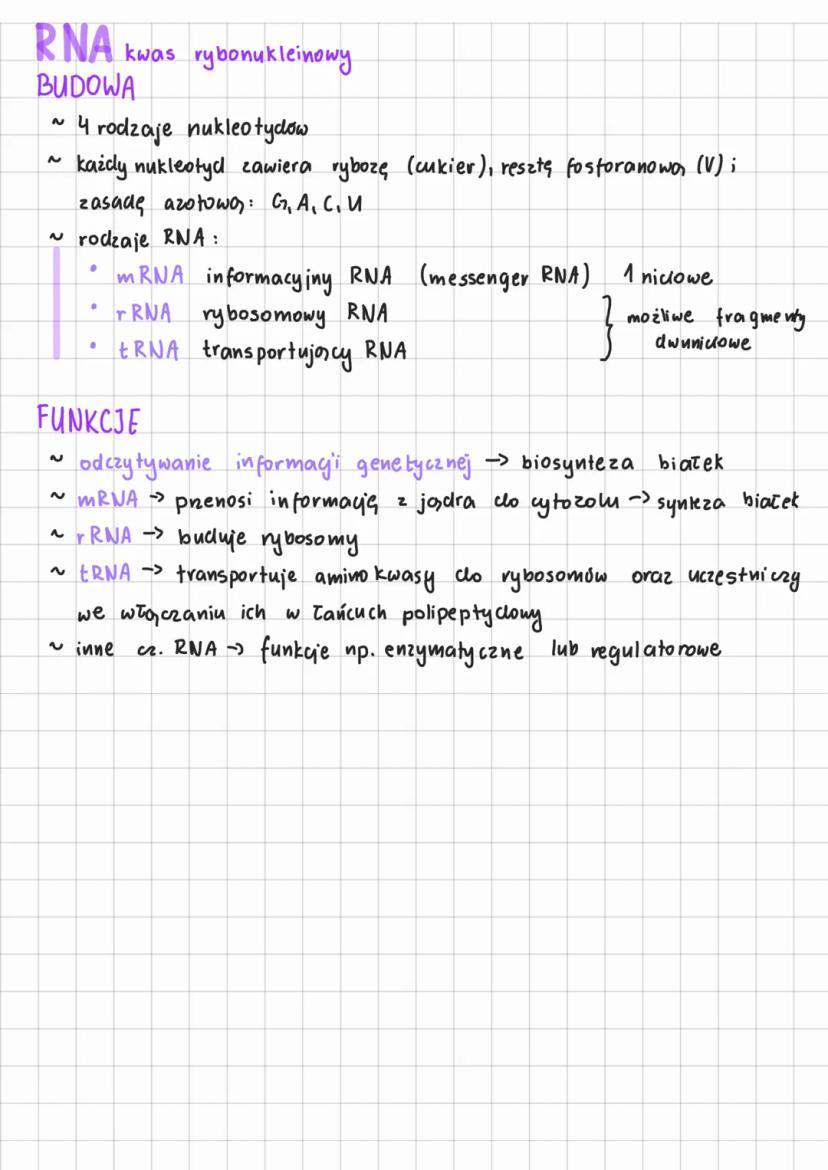 RNA kwas rybonukleinowy
BUDOWA
~ 4 rodzaje nukleotydów
~ każdy nukleotyd zawiera rybozę (cukier), resztę fosforanową (V) i
zasadę azotową: G, A, C, U
~ rodzaje RNA:
• mRNA informacyjny RNA (messenger RNA) 1 niciowe
• rRNA rybosomowy RNA } możliwe fragmenty
• tRNA transportujący RNA dwuniciowe
FUNKCJE
~ odczytywanie informacji genetycznej -> biosynteza białek
~ mRNA -> przenosi informację z jądra do cytozolu -> synteza białek
~ rRNA -> buduje rybosomy
~ tRNA -> transportuje aminokwasy do rybosomów oraz uczestniczy
we włączaniu ich w łańcuch polipeptydowy
~ inne cz. RNA -> funkcje np. enzymatyczne lub regulatorowe